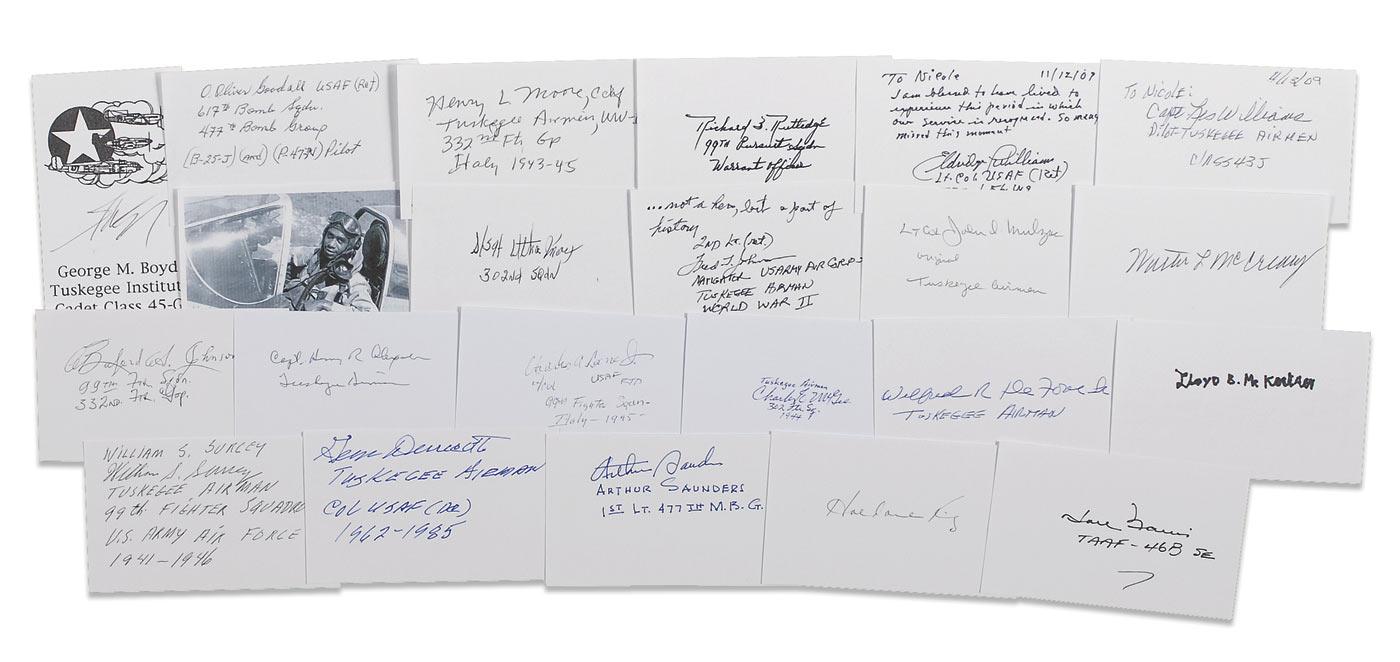 George M. Boyd
Tuskegee Institut
Cadet Class 45-G
O Oliver Goodall USAF (Ret)
617th Bomb Sqdn.
477th Bomb Group
(B-25-J) (and) (P-47-N) Pilot
Henry L Moore,
Tuskegee Airmen, WW-
332nd Ftr Gp
Italy 1943-45
Richard S. Rutledge
99th Pursuit Sqdn
Warrant officer
To Nicole 11/12/09
I am blessed to have lived to
experience this period in which
our service is recognized. So many
missed this moment
Eldridge Williams
Lt. Col USAF (Ret)
11/13/09
To Nicole:
Capt Les Williams
Pilot TUSKEGEE AIRMEN
CLASS 43J
S/Sgt
302nd SQDN
...not a hero, but a part of
history
2ND Lt. (ret)
Fred L. Johnson
NAVIGATOR USARMY AIR CORP-
TUSKEGEE AIRMAN
WORLD WAR II
Lt Col John I. Mulzac
Original
Tuskegee Airman
McCreary
Buford A. Johnson
99th Ftr. Sqdn.
332nd. Ftr. Grp.
Capt. Harry R. Alexander
Tuskegee Airman
Charles A Lane Jr
USAF
99th Fighter Sqdn-
Italy-1945
Tuskegee Airman
Charles E McGee
302 Ftr Sq.
1944
Wilfred R. DeFour Sr
TUSKEGEE AIRMAN
Lloyd B. Mc
WILLIAM S. SURCEY
William S. Surcey
TUSKEGEE AIRMAN
99th FIGHTER SQUADRO
U.S. ARMY AIR FORCE
1941-1946
Gene Derricotte
TUSKEGEE AIRMAN
COL USAF
1962-1985
Arthur Saunders
ARTHUR SAUNDERS
1ST LT. 477TH M.B.G.
Haldane King
TAAF-46B SE